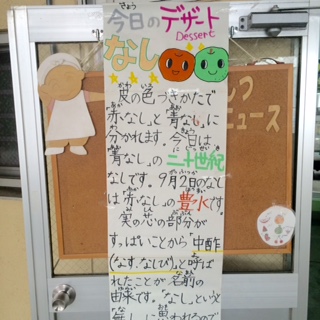 きょう
今日のデザート
Dessert
なし
皮の色づきかたで
「赤なし」と「青なし」に
分かれます。今日は
「青なし」の二十世紀
なしです。9月2日のなし
は「赤なし」の豊水です。
実の芯の部分が
すっぱいことから 中酢
と呼ば
れたことが 名前の
由来です。「なし」という
「無し」に思われるので
しつ
ニュース